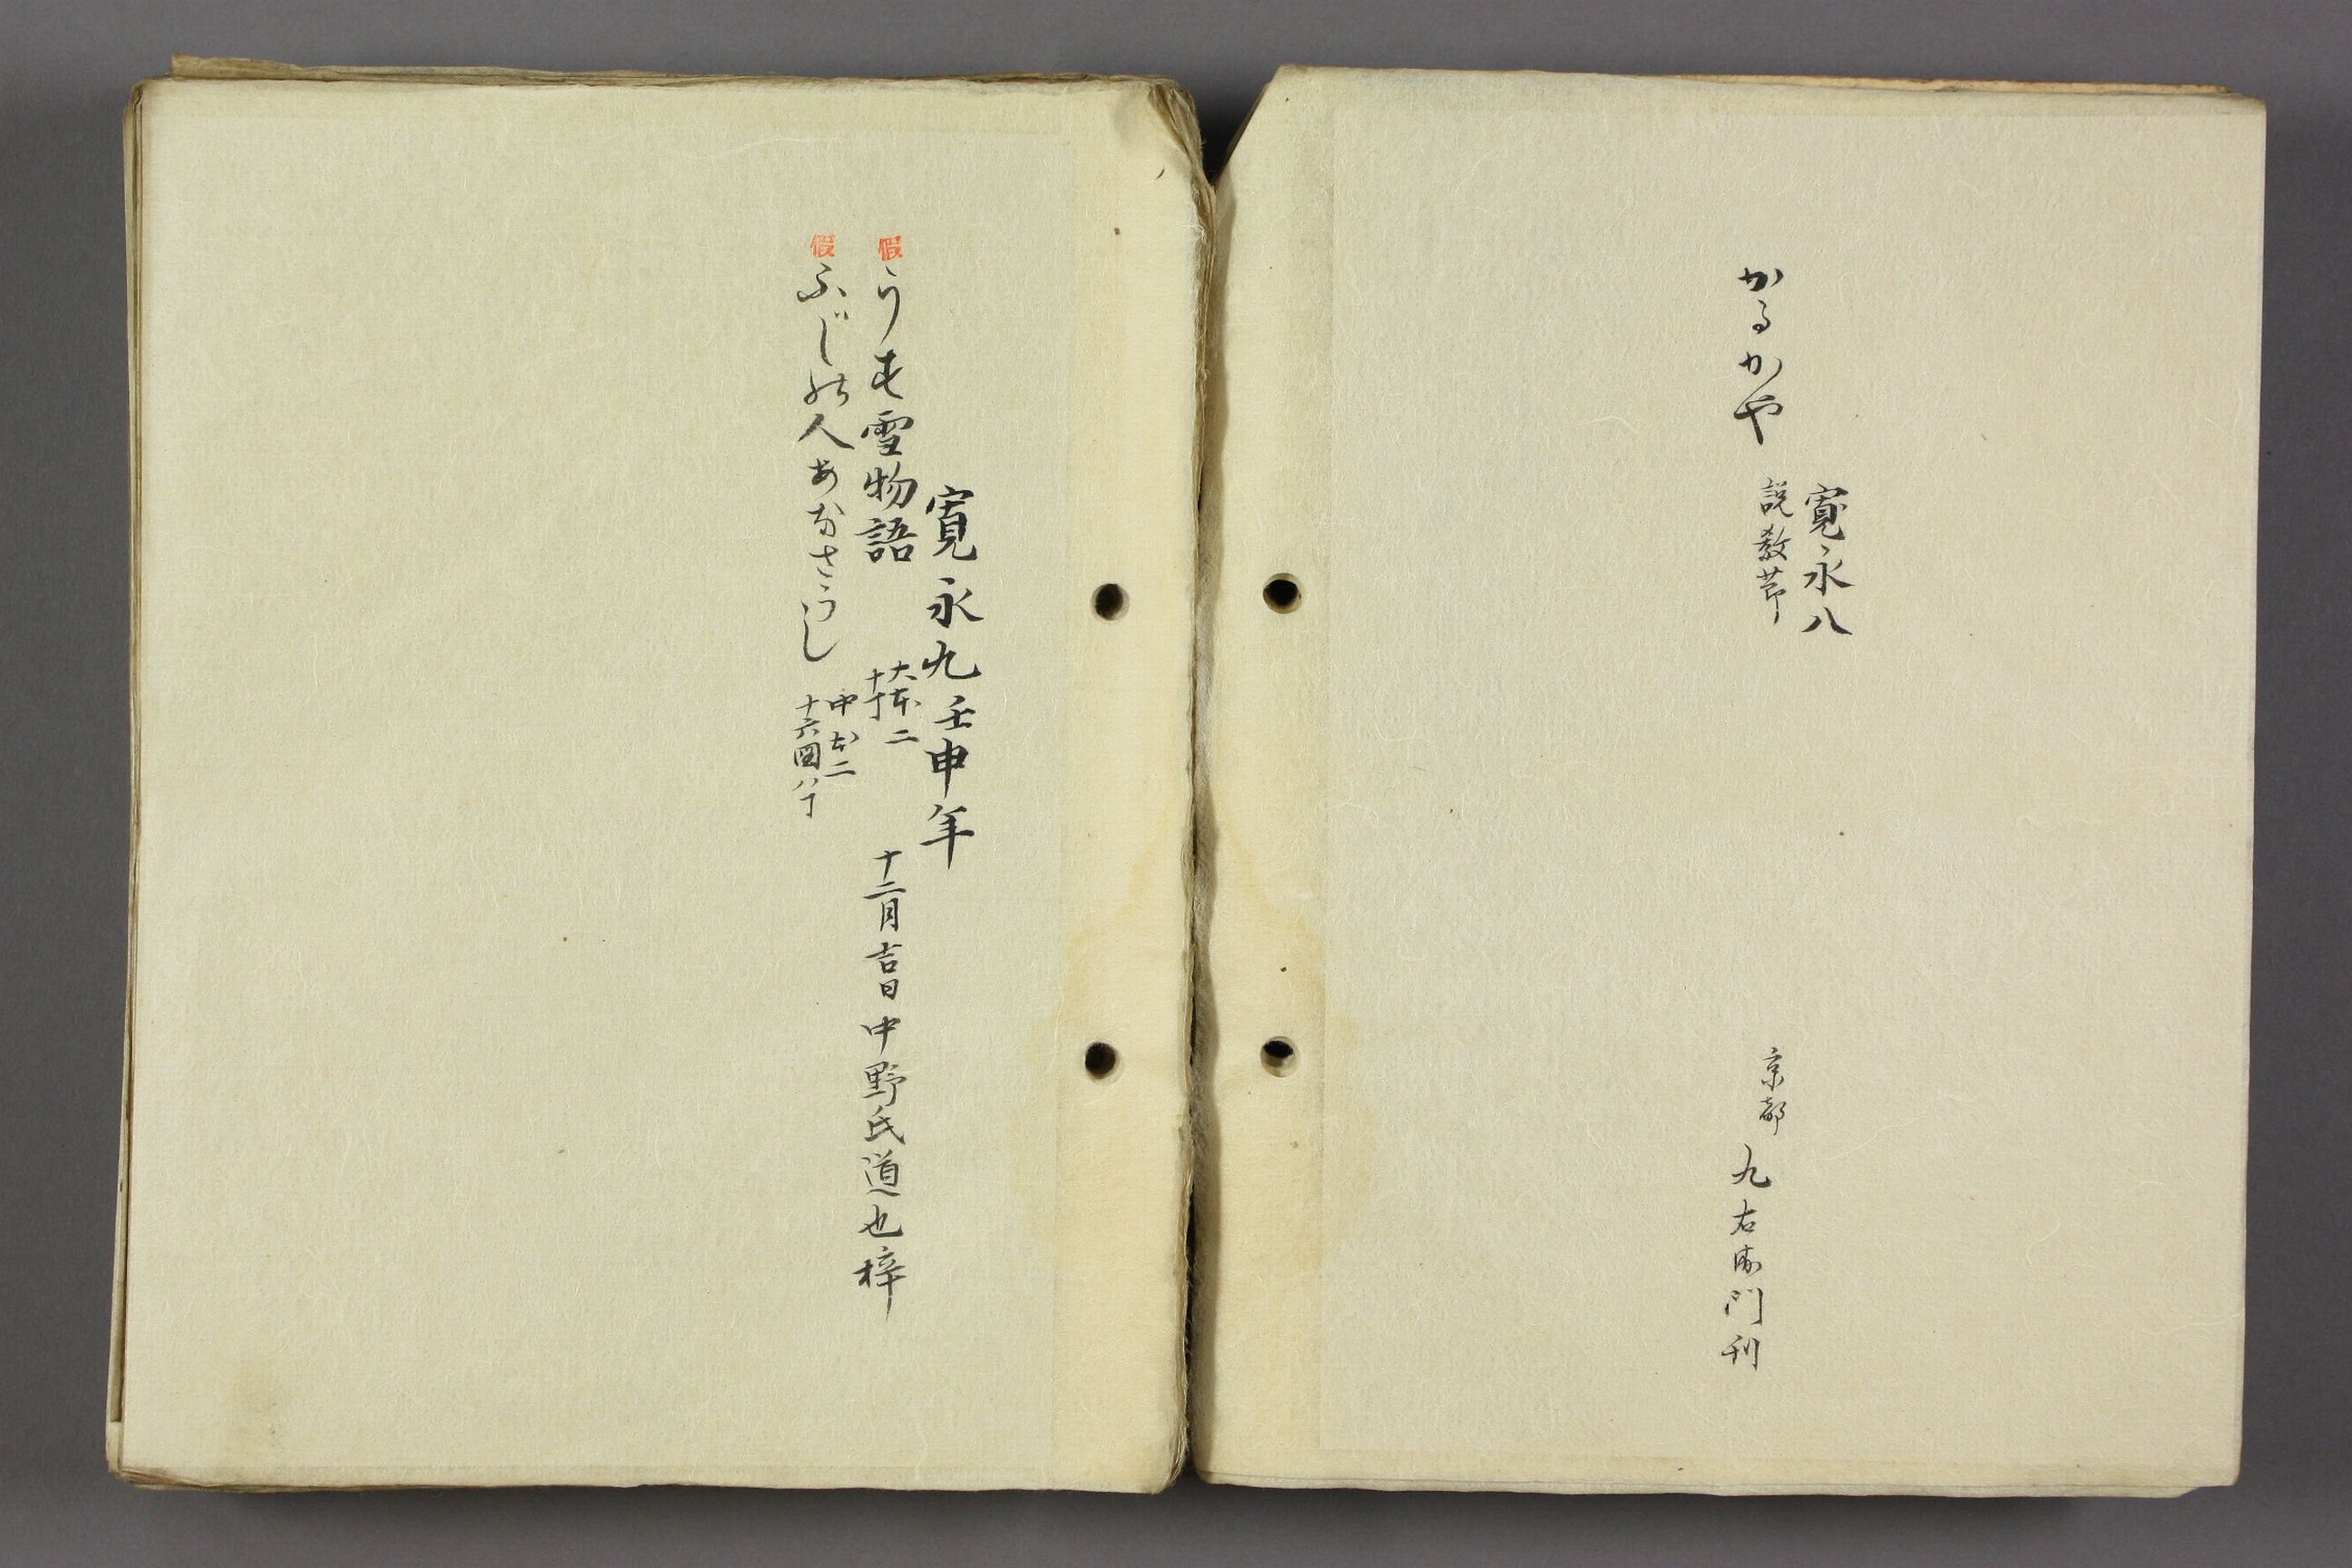 寛永八
かるかや
説教節
京都
九右衛門刊
寛永九壬申年
假
うす雪物語
大本二
十丁
十二月吉日中野氏道也梓
假
ふじの人あなさうし
中本二
十六図